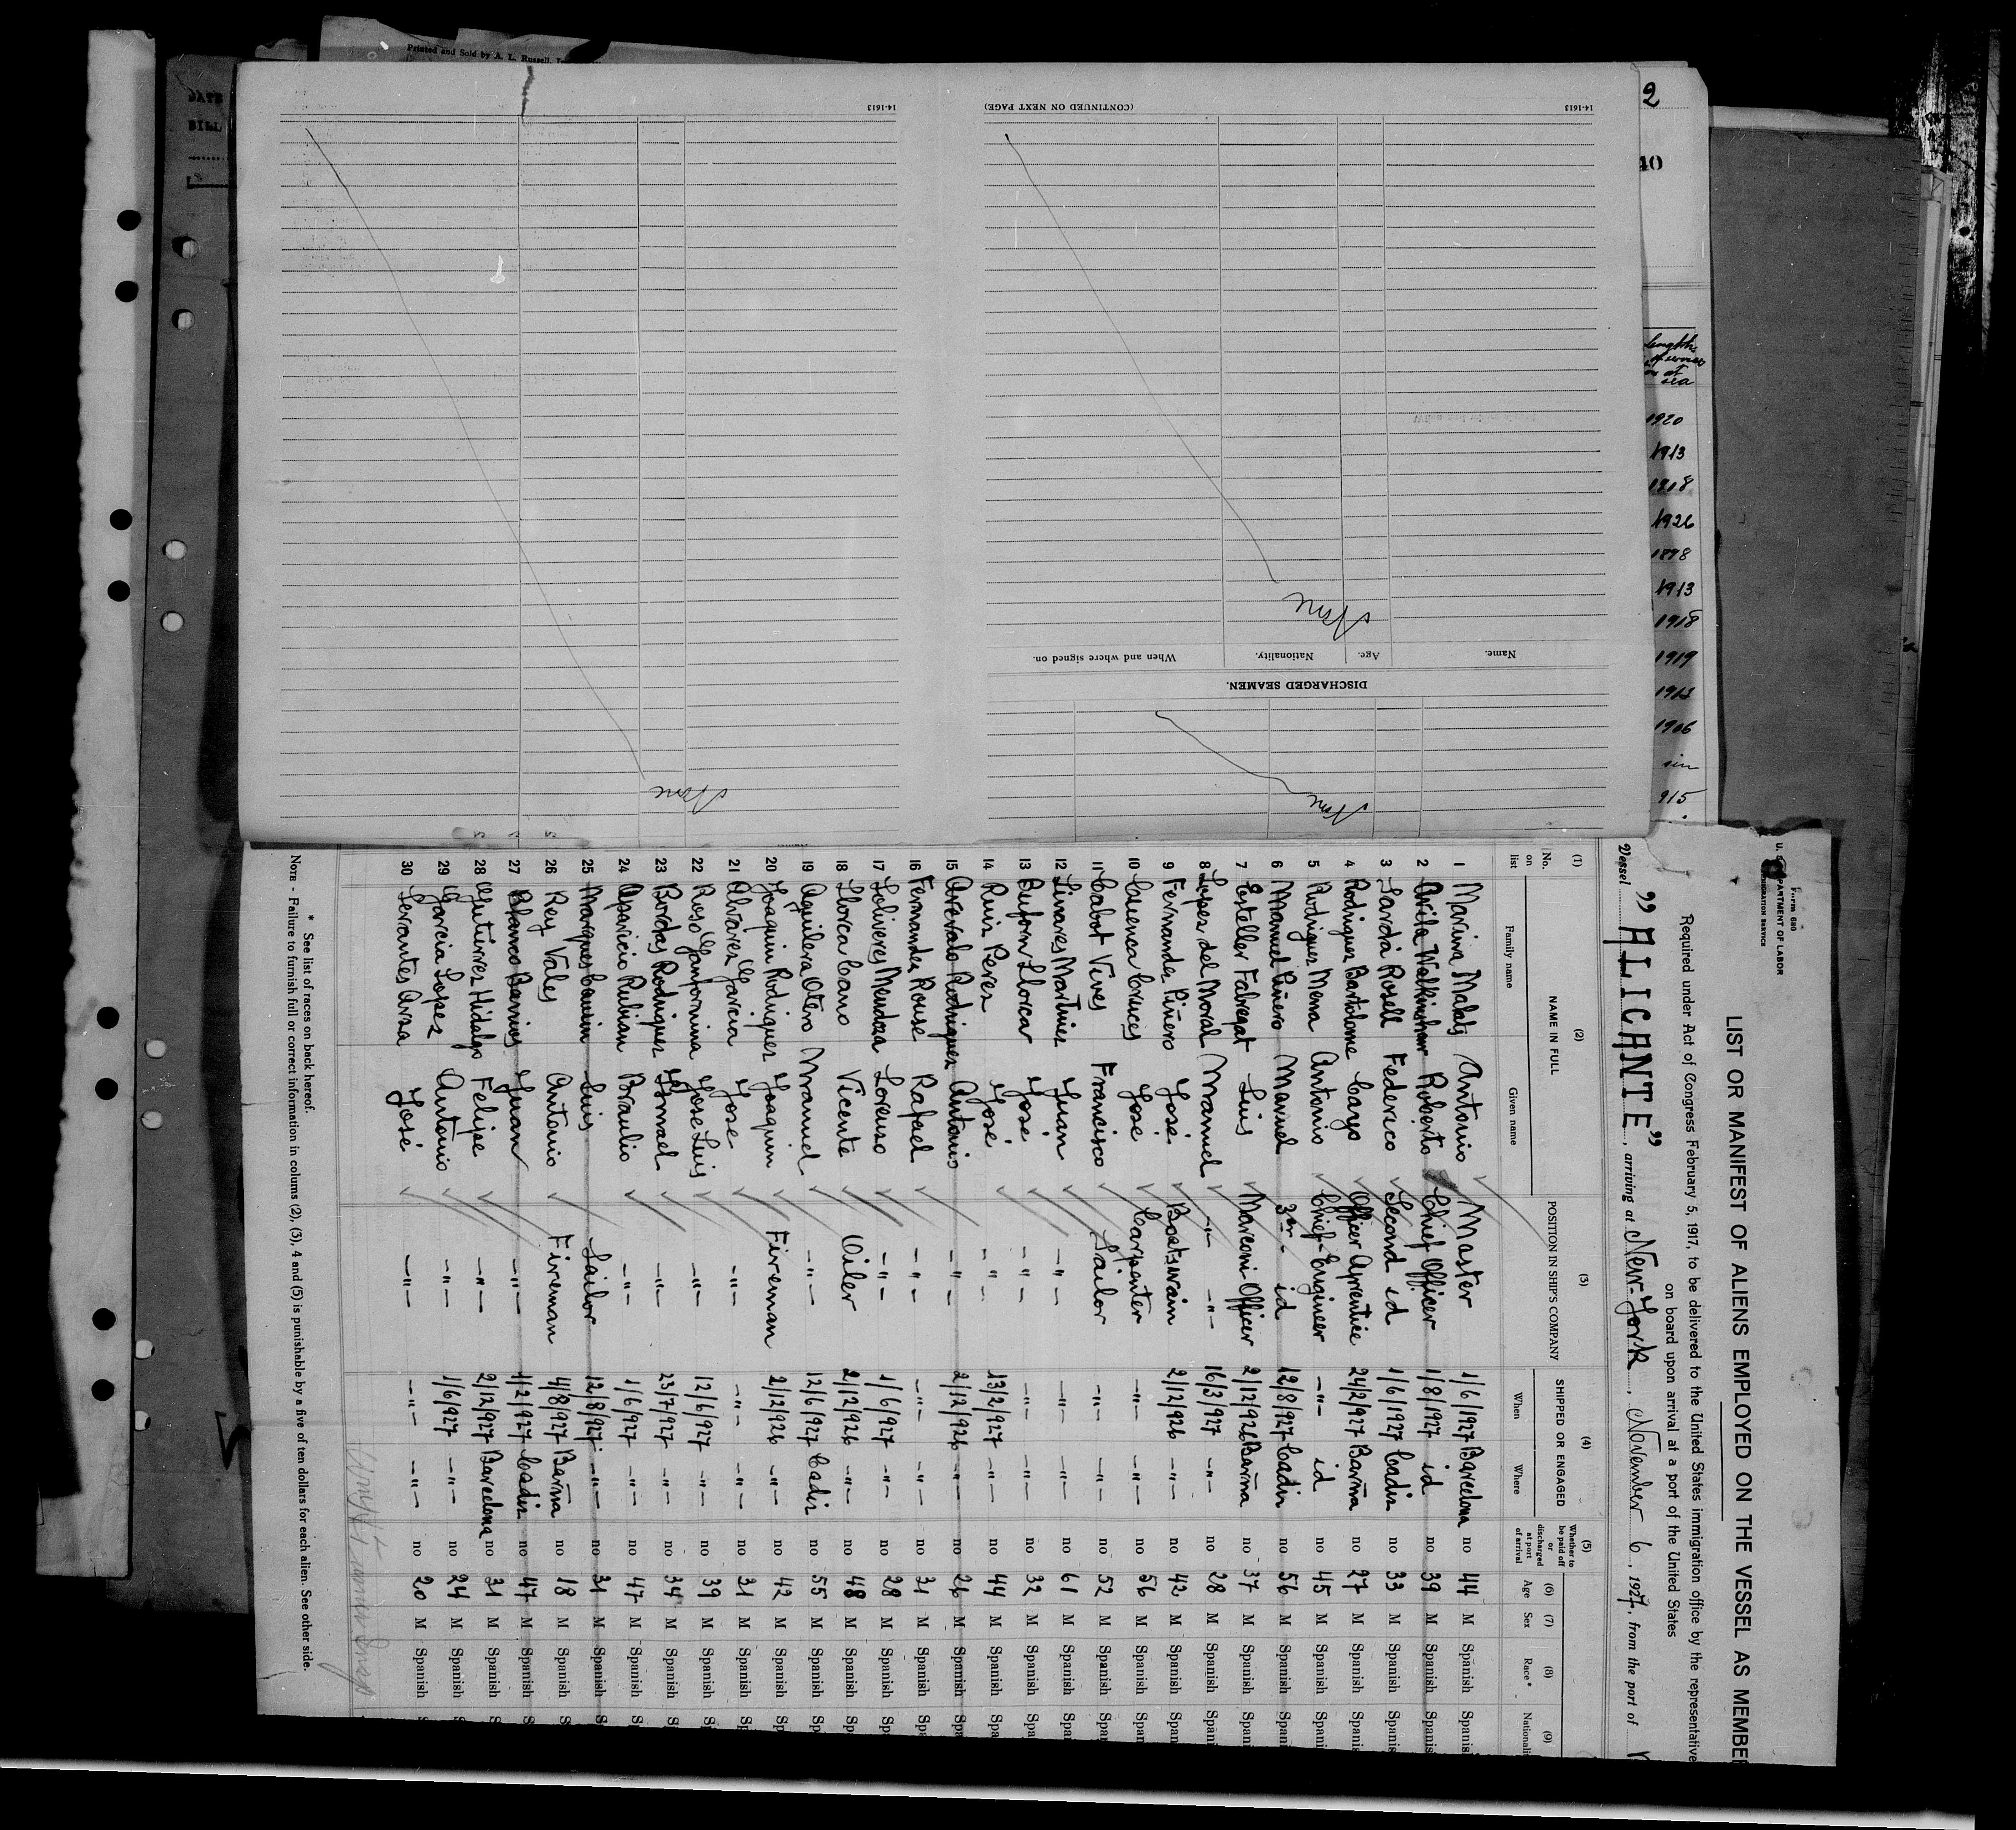 Printed and Sold by A. L. Russell,
DATE
BILL
2
40
Length
of service
at
sea
1920
1913
1918
1926
1898
1913
1918
1919
1906
915
14-1613
(CONTINUED ON NEXT PAGE)
14-1613
None
DISCHARGED SEAMEN.
Name. Age. Nationality. When and where signed on.
None
None
Form 680
U. S. DEPARTMENT OF LABOR
IMMIGRATION SERVICE
LIST OR MANIFEST OF ALIENS EMPLOYED ON THE VESSEL AS MEMBE
Required under Act of Congress February 5, 1917, to be delivered to the United States immigration office by the representative
on board upon arrival at a port of the United States
Vessel "ALICANTE", arriving at New-York, November 6, 1927, from the port of
(1) (2) (3) (4) (5) (6) (7) (8) (9)
No. on list NAME IN FULL Family name Given name POSITION IN SHIP'S COMPANY SHIPPED OR ENGAGED When Where Whether to be paid off or discharged at port of arrival Age Sex Race* Nationali
1 Marina Malats Antonio Master 1/6/1927 Barcelona no 44 M Spanish Spanis
2 Avila Walkinshaw Roberto Chief Officer 1/8/1927 id no 39 M Spanish Spanis
3 Sardá Rosell Federico Second id 1/6/1927 Cadiz no 33 M Spanish Spanis
4 Rodriguez Bartolome Cayo Officer Aprentice 24/2/927 Barña no 27 M Spanish Spanis
5 Rodriguez Mena Antonio Chief-Engineer -"- id no 45 M Spanish Spani
6 Manuel Piñero Manuel 3er- id 12/8/927 Cadiz no 56 M Spanish Spani
7 Esteller Fabregat Luis Marconi-Officer 2/12/926 Barña no 37 M Spanish Spani
8 Lopez del Moral Manuel -"- -"- 16/3/927 -"- no 28 M Spanish Spani
9 Fernandez Piñero José Boatswain 2/12/926 -"- no 42 M Spanish Spani
10 Cuenca Cruces José Carpenter -"- -"- no 56 M Spanish Spani
11 Cabot Vives Francisco Sailor -"- -"- no 52 M Spanish Spani
12 Linares Martinez Juan -"- -"- -"- no 61 M Spanish Spani
13 Buforn Llorca José -"- -"- -"- no 32 M Spanish Spani
14 Ruiz Perez José -"- 13/2/927 -"- no 44 M Spanish Spani
15 Arevalo Rodriguez Antonio -"- 2/12/926 -"- no 26 M Spanish Spani
16 Fernandez Rouse Rafael -"- -"- -"- no 31 M Spanish Spa
17 Soliveres Mendoza Lorenzo -"- 1/6/927 -"- no 28 M Spanish Spa
18 Llorca Cano Vicente Oiler 2/12/926 -"- no 48 M Spanish Spa
19 Aguilera Otero Manuel -"- 12/6/927 Cadiz no 55 M Spanish Spa
20 Joaquin Rodriguez Joaquin Fireman 2/12/926 -"- no 42 M Spanish Sp
21 Alvarez Garcia José -"- -"- -"- no 31 M Spanish Sp
22 Roso Ganfornina Jose Luis -"- 12/6/927 -"- no 39 M Spanish Sp
23 Bordas Rodriguez Ismael -"- 23/7/927 -"- no 34 M Spanish Sp
24 Aparicio Rubian Braulio -"- 1/6/927 -"- no 47 M Spanish Sp
25 Marques Luis Sailor 12/8/927 -"- no 31 M Spanish Sp
26 Rey Vales Antonio Fireman 4/8/927 Barña no 18 M Spanish Sp
27 Blanco Barrios Juan -"- 1/2/927 Cadiz no 47 M Spanish Sp
28 Gutierrez Hidalgo Felipe -"- 2/12/927 Barcelona no 31 M Spanish S
29 Garcia Lopez Antonio -"- 1/6/927 -"- no 24 M Spanish S
30 Servantes Arza José -"- -"- -"- no 20 M Spanish S
* See list of races on back hereof.
NOTE - Failure to furnish full or correct information in colums (2), (3), 4 and (5) is punishable by a five of ten dollars for each alien. See other side.